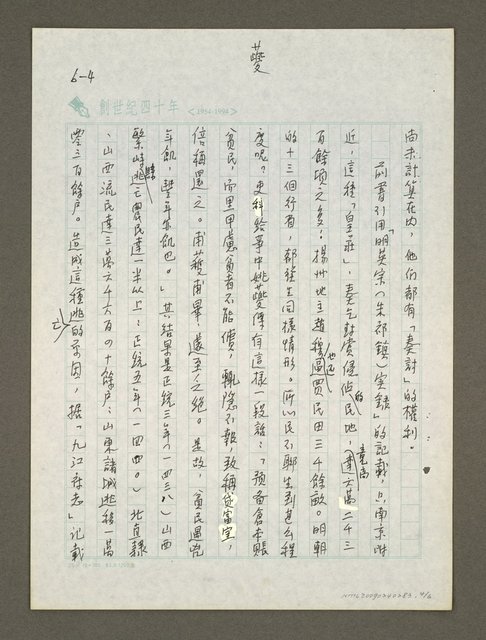 夔
6-4
創世紀四十年 <1954-1994>
尚未計算在內,他們都有「奏討」的權利。
前書引用「明英宗(朱祁鎮)實錄」的記載,只南京附
近,這種「皇莊」,奏乞討賞侵佔的民地,竟高達六萬二千三
百餘頃之多。揚州地主趙穆也逼買民田三千餘畝。明朝
的十三個行省,都發生同樣情形。所以民不聊生到甚么程
度呢?吏科給事中姚夔傳有這樣一段話:「預备倉本賑
貧民,而里甲慮貧者不能償,輒隐不報,致稱貸富室,
倍稱還之。甫蓺甫畢,還至之绝。是故,貧民遇凶
年飢,豐年亦飢也。」其結果是正統三年(一四三八)山西
繁峙逃亡農民達一半以上;正統五年(一四四〇)北直隸
、山西流民達三萬六千六百四十餘户;山東諸城逃移一萬
零三百餘户。造成這種逃亡的原因,據「九江府志」記載
NM1620090240283. 4/6